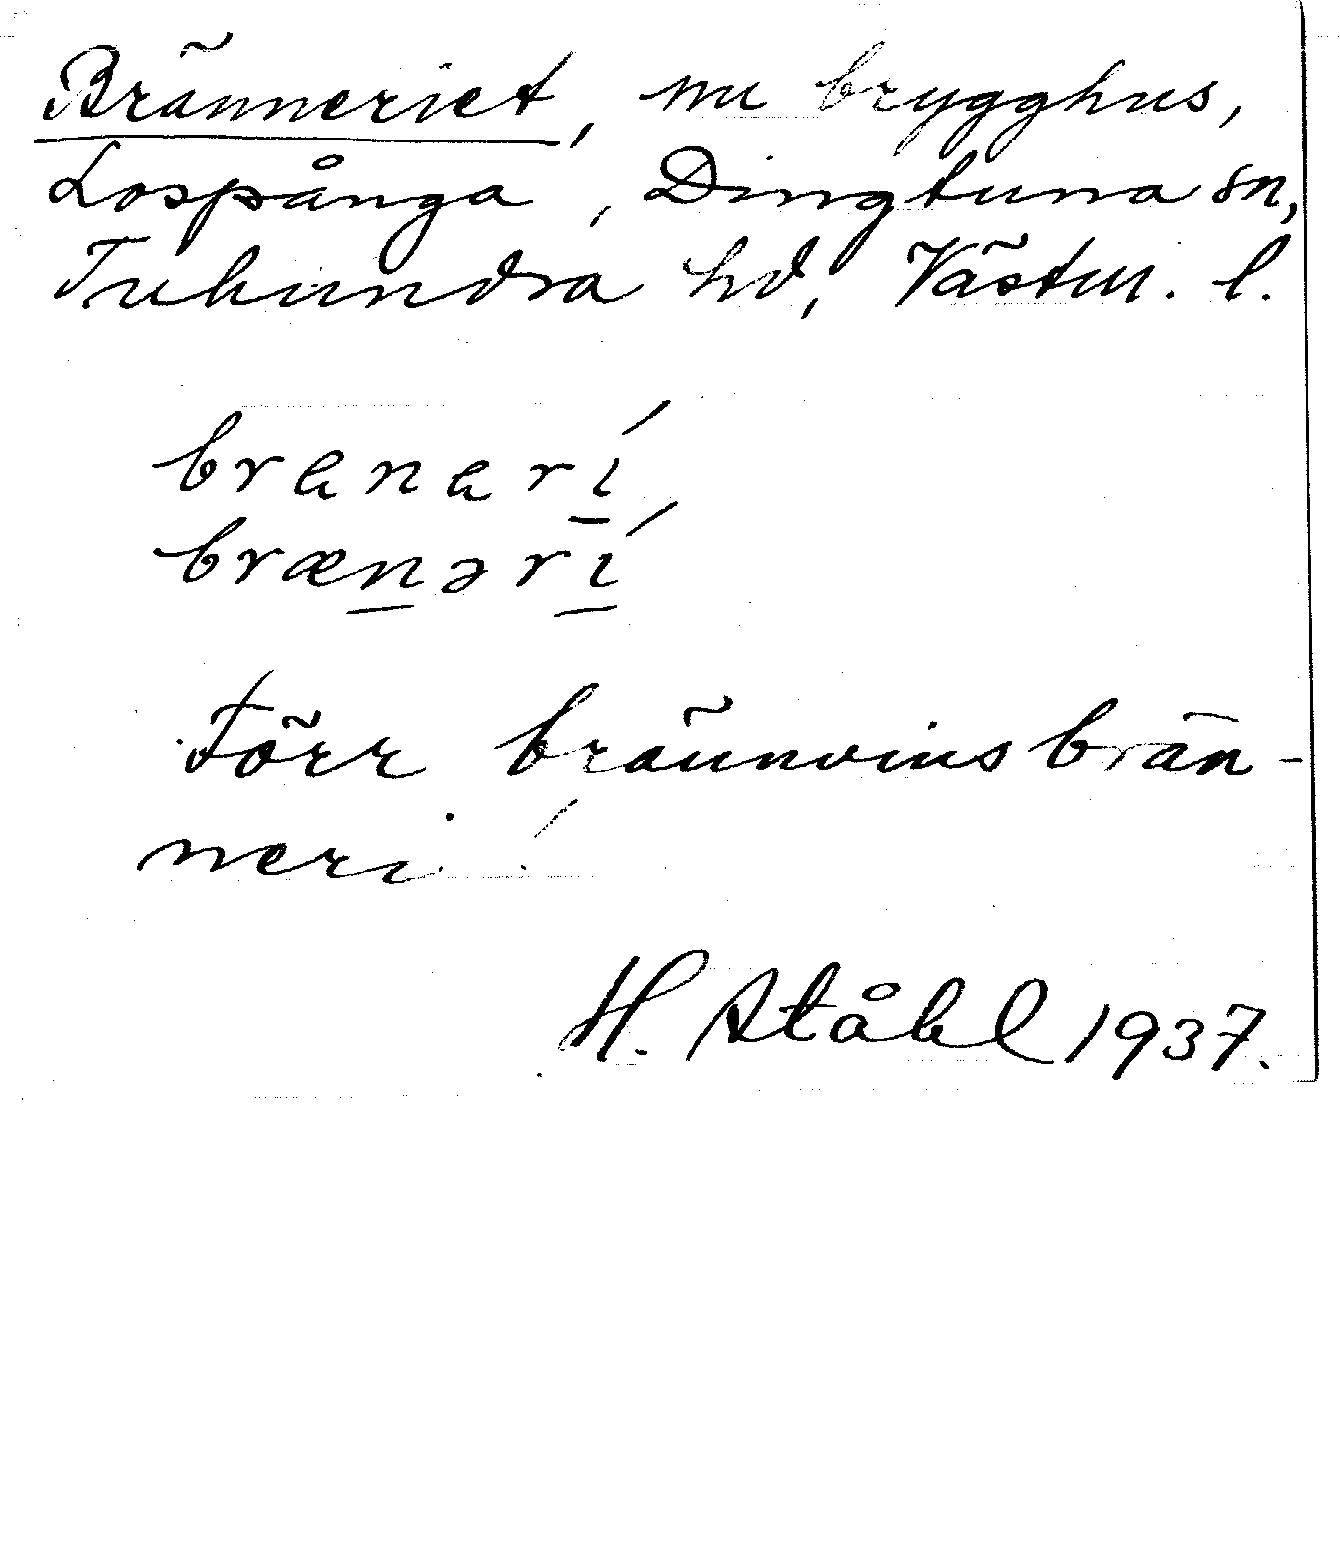 Bränneriet, nu brygghus,
Lospånga, Dingtuna sn,
Tuhundra hd, Västm. l.
branarí
brænərí
Förr brännvinsbrän-
neri.
H. Ståhl 1937.